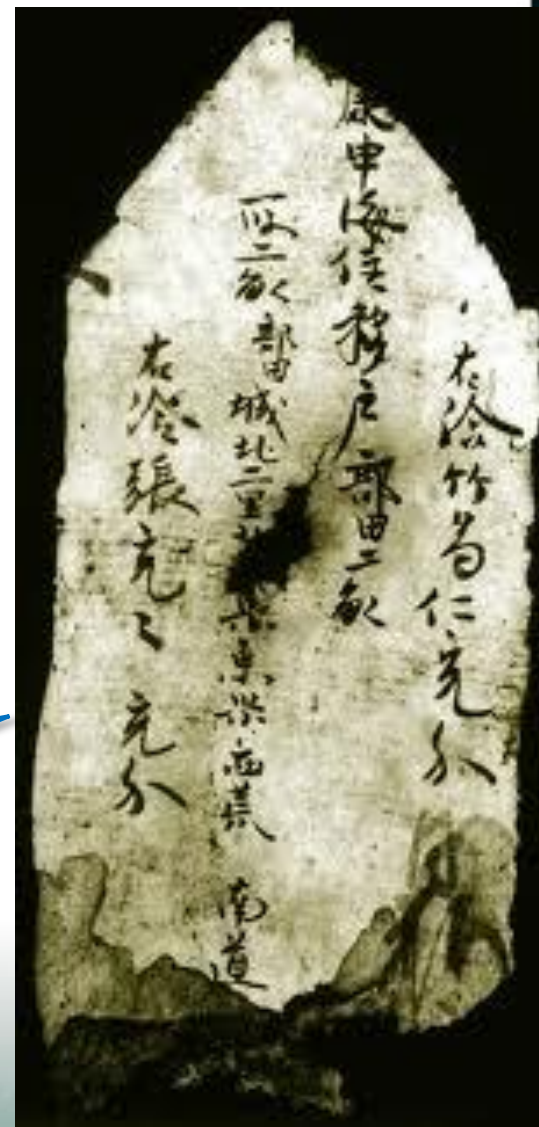 右給竹苟仁充分
康申海住移戶部田二畝
一段二畝 部田 城北二里 渠 東渠 西荒 南道
右給張充々 充分